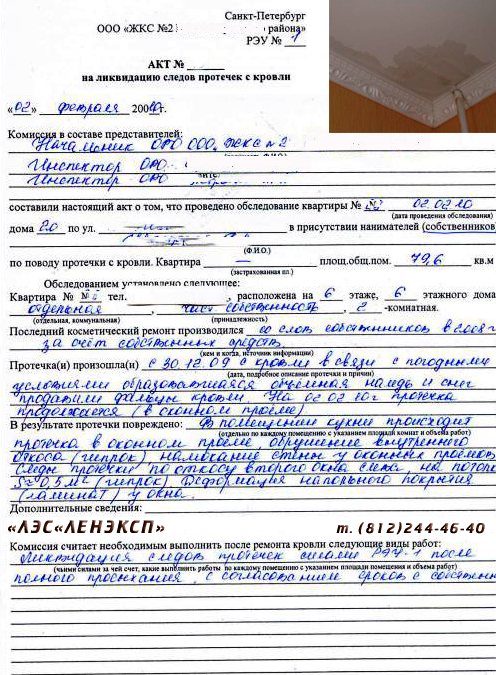 Санкт-Петербург
ООО «ЖКС №2 района»
РЭУ № 1
АКТ №
на ликвидацию следов протечек с кровли
«02» февраля 200 г.
Комиссия в составе представителей:
Начальник ОРО ООО, ЖКС №2
(Ф.И.О.)
Инспектор ОРО
Инспектор ОРО
составили настоящий акт о том, что проведено обследование квартиры № 02.02.10
(дата проведения обследования)
дома 20 по ул. в присутствии нанимателей (собственников
(Ф.И.О.)
по поводу протечки с кровли. Квартира — площ.общ.пом. 79,6 кв.м
(застрахованная пл.)
Обследованием установлено следующее:
Квартира № тел. , расположена на 6 этаже, 6 этажного дома
отдельная, част. собственность, 2 -комнатная.
(отдельная, коммунальная) (принадлежность)
Последний косметический ремонт производился со слов собственников в 2008 г
за счёт собственных средств.
(кем и когда, источник информации)
Протечка(и) произошла(и) с 30.12.09 с кровли в связи с погодными
(дата, подробное описание протечки и причин)
условиями образовавшаяся объёмная наледь и снег
продавили фальцы кровли. На 02.02.10г протечка
продолжается (в оконном проёме)
В результате протечки повреждено: В помещении кухни происходит
(отдельно по каждому помещению с указанием площади комнат и объема работ)
протечка в оконном проёме обрушение внутреннего
откоса (гипрок) намокание стены у оконных проёмов
следы протечки по откосу второго окна слева, на потолке
S≈0,5м² (гипрок) Деформация напольного покрытия
(ламинат) у окна.
Дополнительные сведения:
«ЛЭС«ЛЕНЭКСП» т. (812)244-46-40
Комиссия считает необходимым выполнить после ремонта кровли следующие виды работ:
Ликвидация следов протечек силами РЭУ-1 после
(чьими силами за чей счет, какие выполнить работы по каждому помещению с указанием площади помещения и объема работ)
полного просыхания, с согласованием сроков с собственн